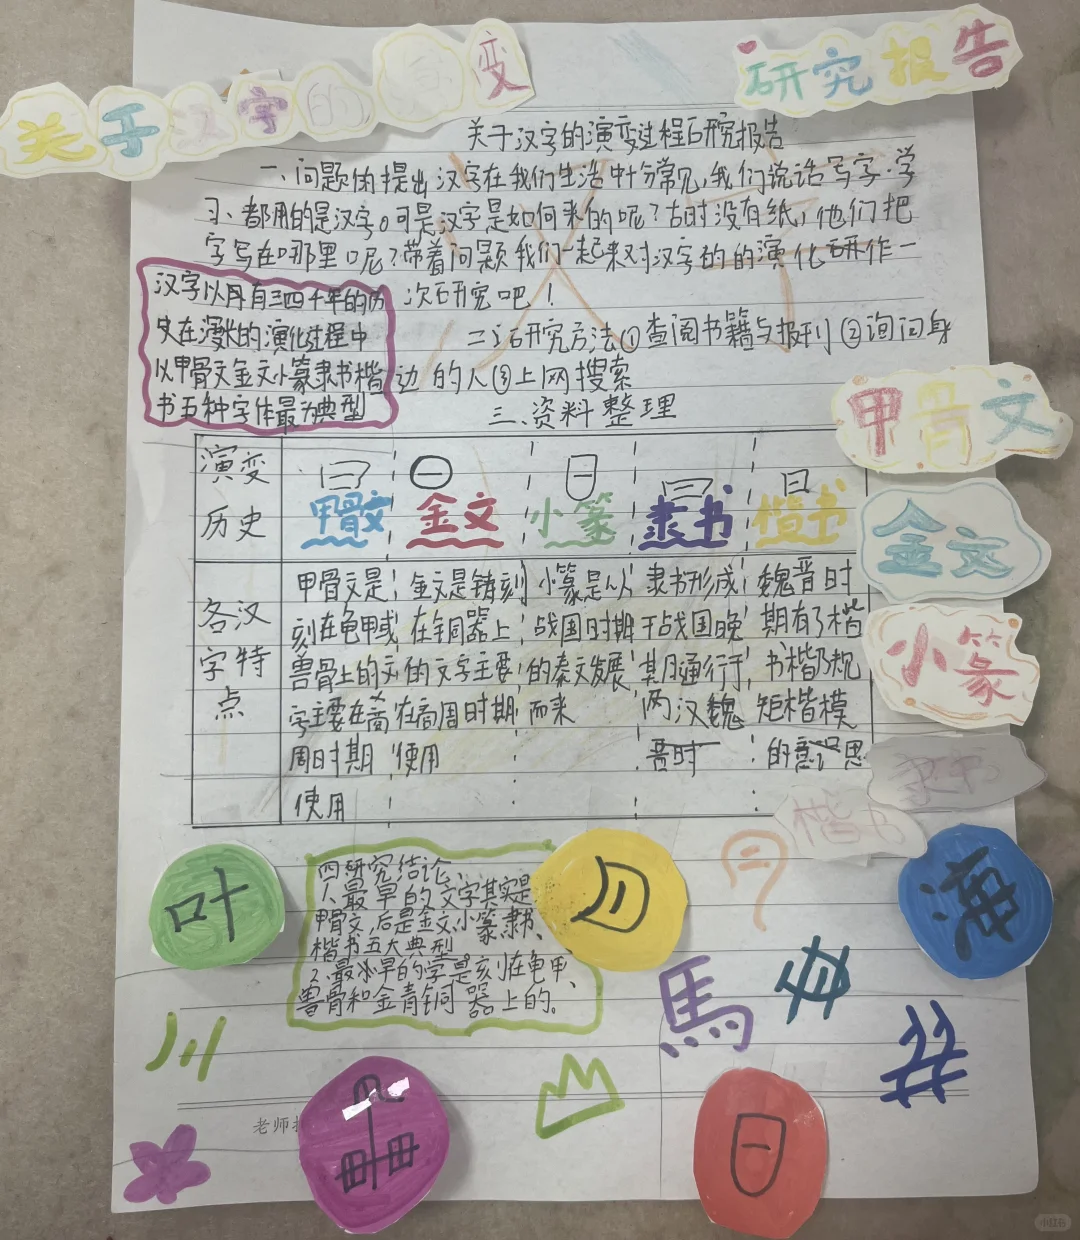 关于汉字的 变
研究报告
关于汉字的演变过程研究报告
一、问题的提出汉字在我们生活中十分常见,我们说话写字·学
习、都用的是汉字。可是汉字是如何来的呢?古时没有纸,他们把
字写在哪里呢?带着问题我们一起来对汉字的的演化研作一
次研究吧!
汉字以月有三四千年的历
史在漫长的演化过程中
以甲骨文金文小篆隶书楷
书五种字体最为典型
二、研究方法①查阅书籍与报刊②询问身
边的人③上网搜索
三、资料整理
甲骨文
金文
小篆
隶书
楷书
演变历史
甲骨文 金文 小篆 隶书 楷书
各汉字特点
甲骨文是
刻在龟甲或
兽骨上的文
字主要在商
周时期
使用
金文是铸刻
在铜器上
的文字主要
在商周时期
使用
小篆是从
战国时期
的秦文发展
而来
隶书形成
于战国晚
期通行于
两汉魏
晋时
魏晋时
期有了楷
书楷乃规
矩楷模
的意思
四研究结论、
1、最早的文字其实是
甲骨文,后是金文、小篆、隶书、
楷书五大典型
2、最早的字是刻在龟甲、
兽骨和金青铜器上的。
叶
海
馬
日
老师